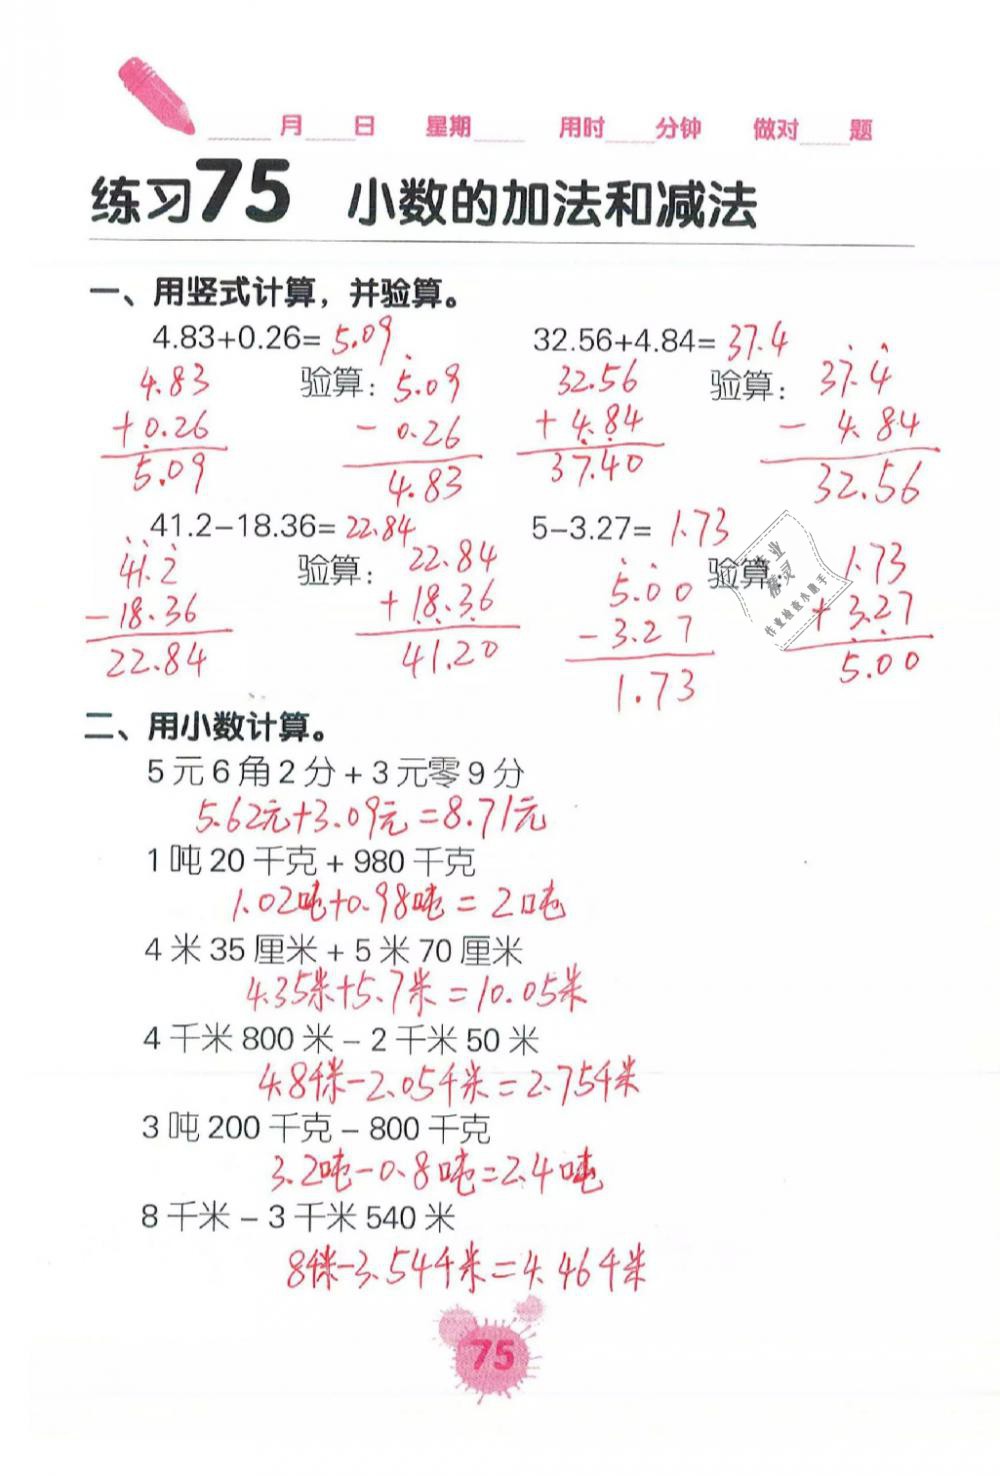 月 日 星期 用时 分钟 做对 题
练习75 小数的加法和减法
一、用竖式计算，并验算。
4.83+0.26= 5.09 32.56+4.84= 37.4
4.83 验算: 5.09 32.56 验算: 37.4
+0.26 -0.26 +4.84 -4.84
5.09 4.83 37.40 32.56
41.2-18.36= 22.84 5-3.27= 1.73
41.2 验算: 22.84 5.00 验算 1.73
-18.36 +18.36 -3.27 +3.27
22.84 41.20 1.73 5.00
作业精灵
作业检查小助手
二、用小数计算。
5元6角2分+3元零9分
5.62元+3.09元=8.71元
1吨20千克+980千克
1.02吨+0.98吨=2吨
4米35厘米+5米70厘米
4.35米+5.7米=10.05米
4千米800米-2千米50米
4.8千米-2.05千米=2.75千米
3吨200千克-800千克
3.2吨-0.8吨=2.4吨
8千米-3千米540米
8千米-3.54千米=4.46千米
75